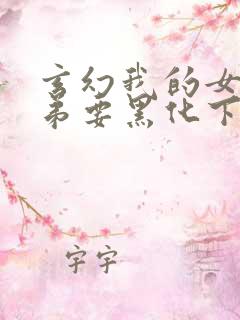 玄幻我的女
弟要黑化下
宇宇